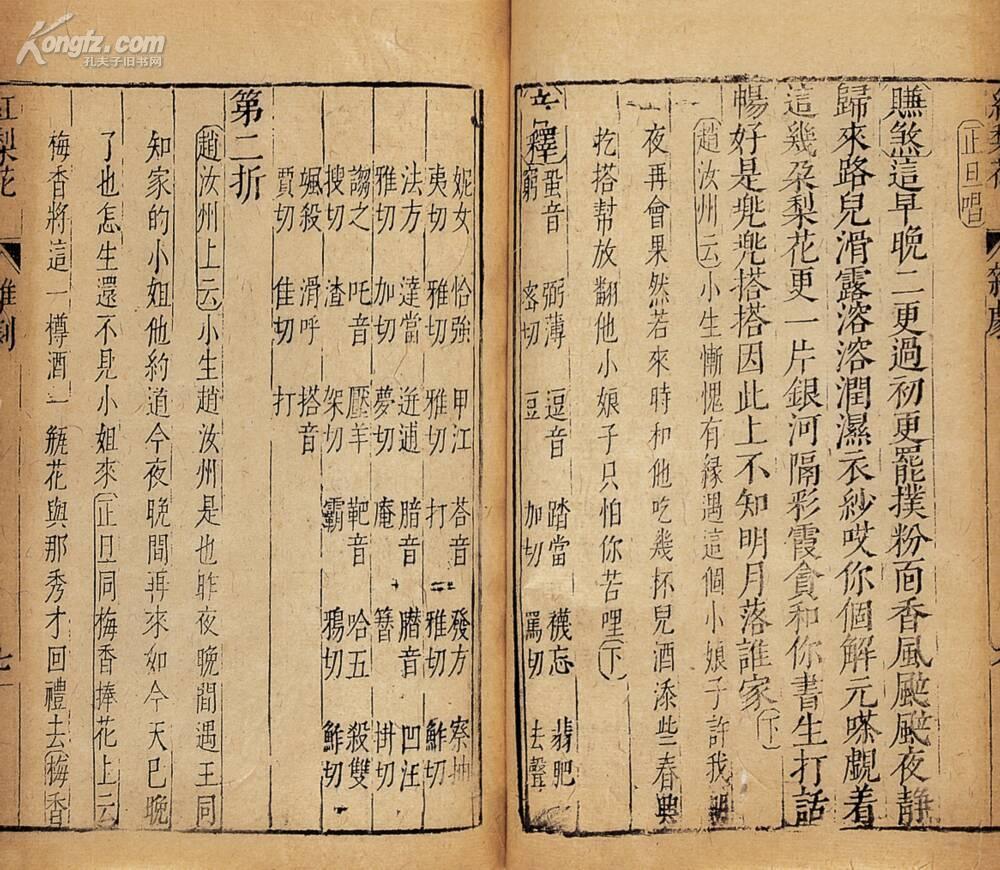 Kongfz.com
孔夫子旧书网
正旦唱
賺煞這早晚二更過初更罷撲粉面香風颭颭夜靜
歸來路兒滑露溶溶潤濕衣紗哎你個解元嗏覷着
這幾朶梨花更一片銀河隔彩霞貪和你書生打話
暢好是兠兠搭搭因此上不知明月落誰家下
趙汝州云小生慚愧有緣遇這個小娘子許我明
夜再會果然若來時和他吃幾杯兒酒添些春興
扢搭幫放翻他小娘子只怕你苦哩下
音釋
蛩音窮
弼薄密切
逗音豆
踏當加切
襪忘罵切
翡肥去聲
妮女夷切
恰強雅切
甲江雅切
荅音打
發方雅切
察抽鮓切
法方雅切
達當加切
迸逋夢切
腊音庵
臢音簪
凹汪掛切
謅之搜切
吒音渣
壓羊架切
靶音霸
哈五鴉切
殺雙鮓切
颯殺賈切
滑呼佳切
搭音打
第二折
趙汝州上云小生趙汝州是也昨夜晚間遇王同
知家的小姐他約道今夜晚間再來如今天已晚
了也怎生還不見小姐來正旦同梅香捧花上云
梅香將這一樽酒一瓶花與那秀才回禮去梅香
紅梨花
雜劇
七